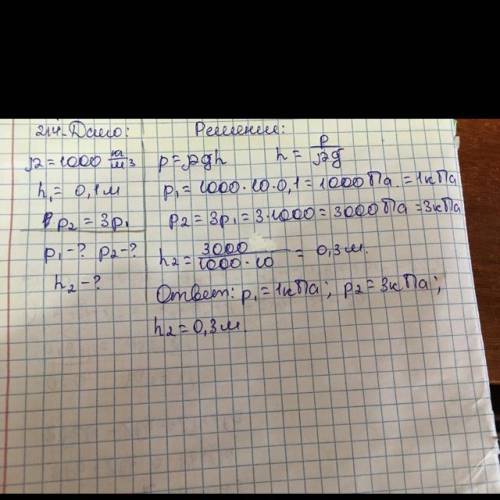 214. Дано:
ρ = 1000 кг/м³
h₁ = 0,1 м
p₂ = 3p₁
p₁ - ? p₂ - ?
h₂ - ?
Решение:
p = ρgh h = p/ρg
p₁ = 1000 · 10 · 0,1 = 1000 Па = 1 кПа
p₂ = 3p₁ = 3 · 1000 = 3000 Па = 3 кПа
h₂ = 3000/1000 · 10 = 0,3 м.
Ответ: p₁ = 1 кПа; p₂ = 3 кПа;
h₂ = 0,3 м